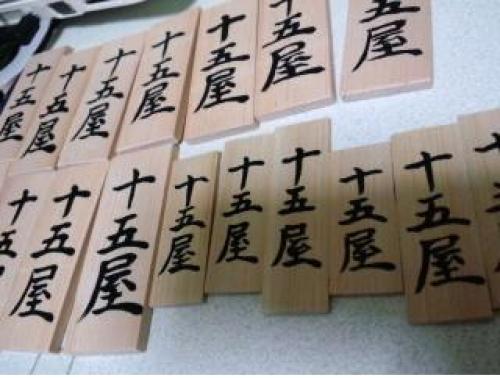 十五屋
十五屋
十五屋
十五屋
十五屋
十五屋
五屋
十五
十五屋
十五屋
十五屋
十五屋
十五屋
十五屋
十五屋
十